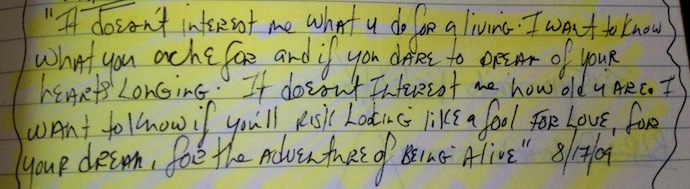 "It doesn't interest me what u do for a living. I want to know
what you ache for and if you dare to dream of your
hearts longing. It doesnt interest me how old u are. I
want to know if you'll risk looking like a fool for love, for
your dream, for the adventure of being alive" 8/17/09